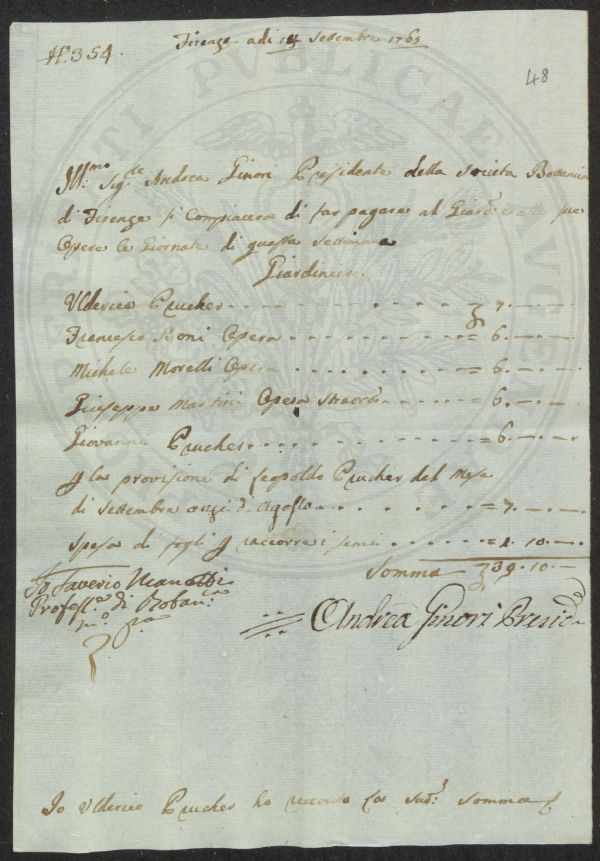 N.º 354.
Firenze adi 14 Settembre 1765
48
Ill:mo Sig:re Andrea Ginori Presidente della Società Bottanica
di Firenze si Compiacera di far pagare al Giard:e e alle sue
Opere le Giornate di questa Settimana
Giardiniere
Ulderico Prucher 7.
Francesco Boni Opera = 6.
Michele Morelli Opera = 6.
Giuseppe Martini Opera Straord: = 6.
Giovanni Prucher = 6.
p la provisione di Leopoldo Prucher del Mese
di Settembre anzi d'Agosto = 7.
Spesa di fogli p raccorre i semi = 1. 10.
Somma 39. 10.
Io Saverio Manetti
Profess:e di Botan:ca
mº pp:a
Andrea Ginori Presid:e
Io Ulderico Prucher ho ricevuto la sud:a Somma
PUBLICAE